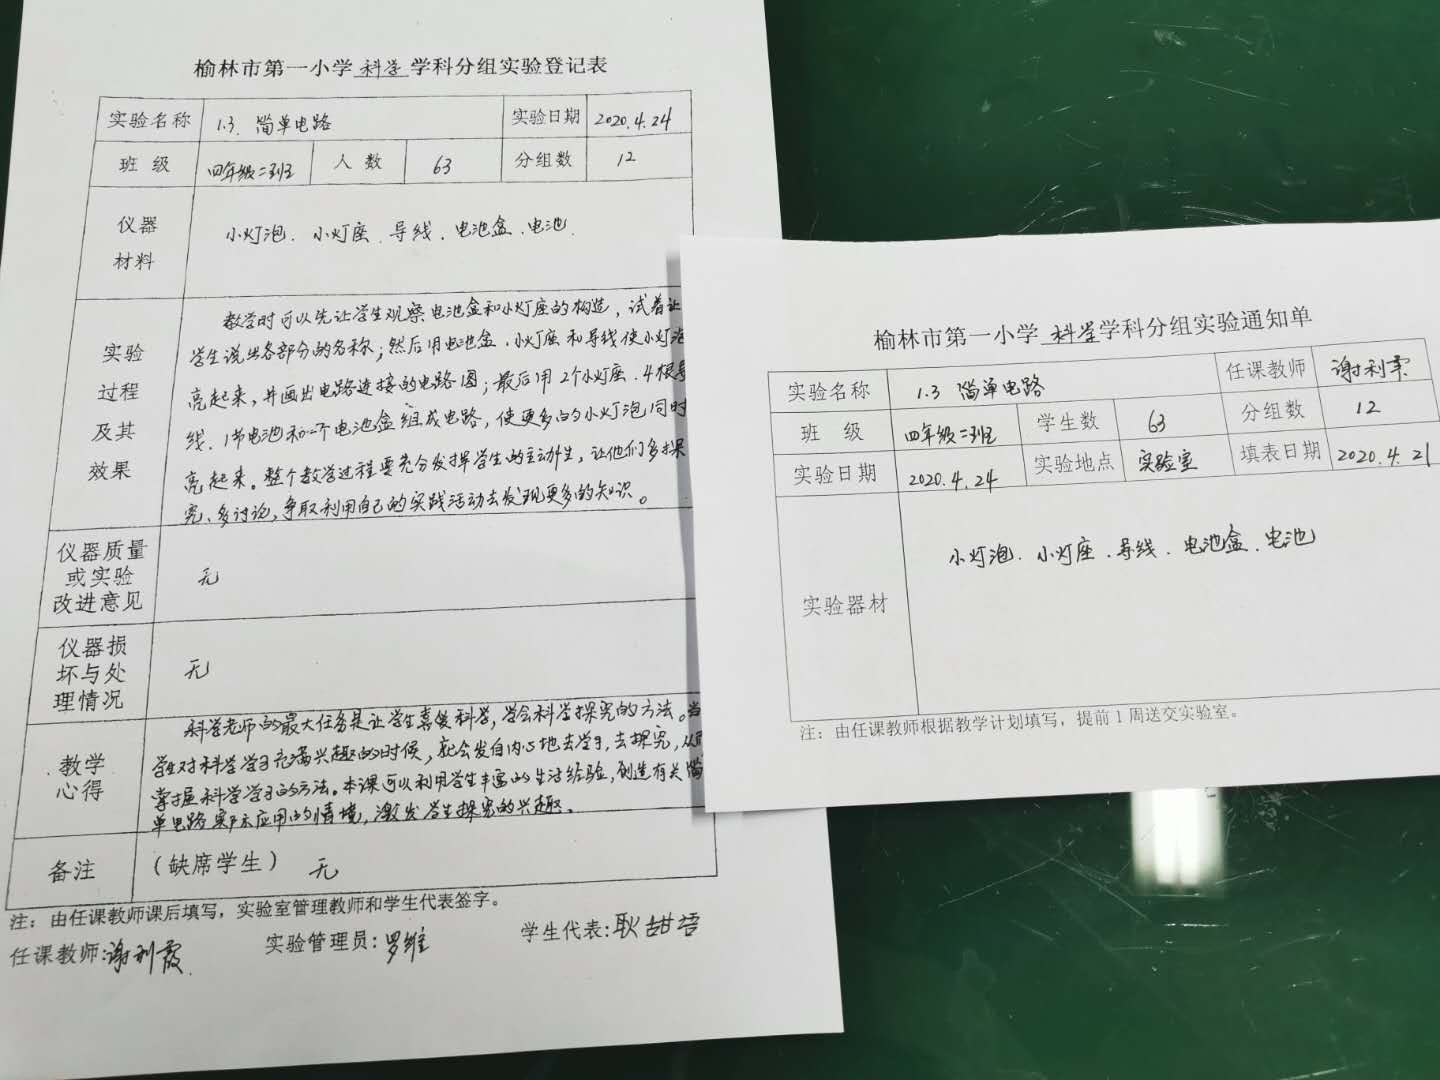 榆林市第一小学 科学 学科分组实验登记表
实验名称 1.3. 简单电路 实验日期 2020.4.24
班 级 四年级二班 人 数 63 分组数 12
仪器
材料
小灯泡、小灯座、导线、电池盒、电池
实验
过程
及其
效果
教学时可以先让学生观察电池盒和小灯座的构造，试着让
学生说出各部分的名称；然后用电池盒、小灯座和导线使小灯泡
亮起来，并画出电路连接的电路图；最后用2个小灯座、4根导
线、1节电池和一个电池盒组成电路，使更多的小灯泡同时
亮起来。整个教学过程要充分发挥学生的主动性，让他们多探
究、多讨论，争取利用自己的实践活动去发现更多的知识。
仪器质量
或实验
改进意见
无
仪器损
坏与处
理情况
无
教学
心得
科学老师的最大任务是让学生喜爱科学，学会科学探究的方法。当
学生对科学学习充满兴趣的时候，就会发自内心地去学习，去探究，从而
掌握科学学习的方法。本课可以利用学生丰富的生活经验，创造有关简
单电路实际应用的情境，激发学生探究的兴趣。
备注 （缺席学生） 无
注：由任课教师课后填写，实验室管理教师和学生代表签字。
任课教师:谢利霞 实验管理员:罗维 学生代表:耿甜语
榆林市第一小学 科学 学科分组实验通知单
实验名称 1.3 简单电路 任课教师 谢利霞
班 级 四年级二班 学生数 63 分组数 12
实验日期 2020.4.24 实验地点 实验室 填表日期 2020.4.21
实验器材
小灯泡、小灯座、导线、电池盒、电池
注：由任课教师根据教学计划填写，提前1周送交实验室。